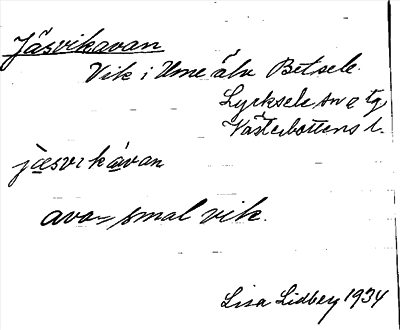 Jäsvikavan
Vik i Ume älv Betsele.
Lycksele sn o tg
Västerbottens l.
jäsvikávan
ava = smal vik.
Lisa Lidbey 1934